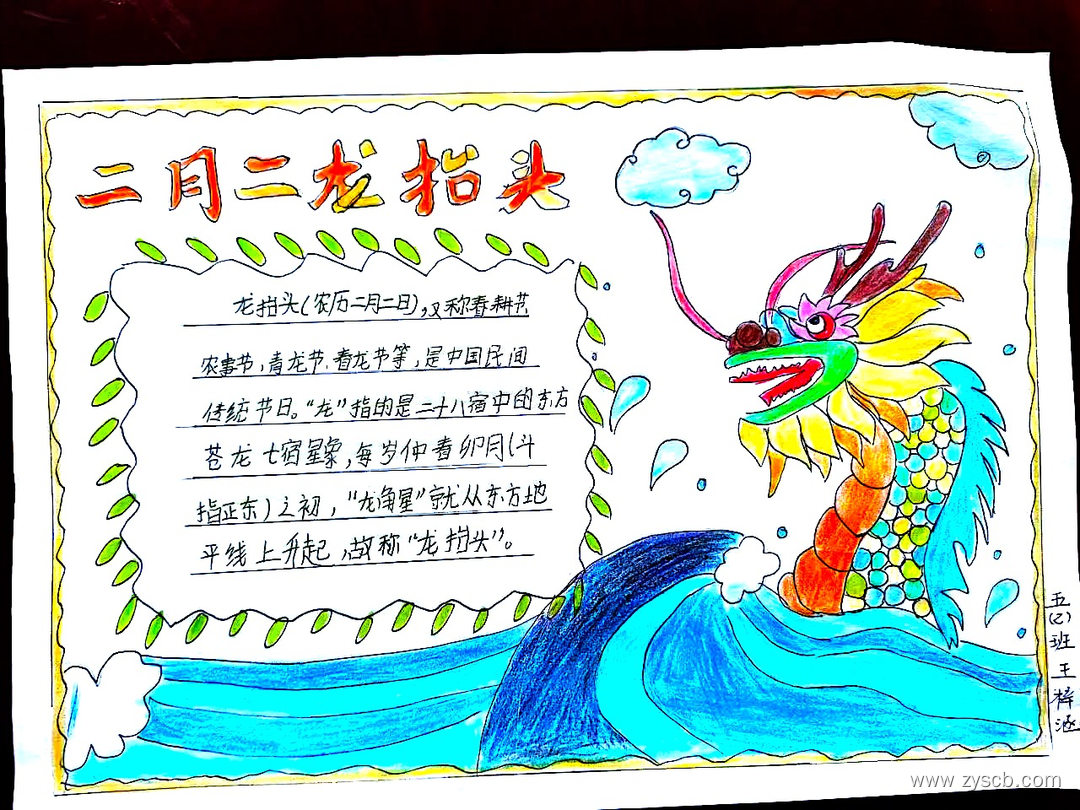 二月二龙抬头
龙抬头(农历二月二日),又称春耕节
农事节,青龙节,春龙节等,是中国民间
传统节日。“龙”指的是二十八宿中的东方
苍龙七宿星象,每岁仲春卯月(斗
指正东)之初,“龙角星”就从东方地
平线上升起,故称“龙抬头”。
五(2)班 王梓涵
www.zyscb.com